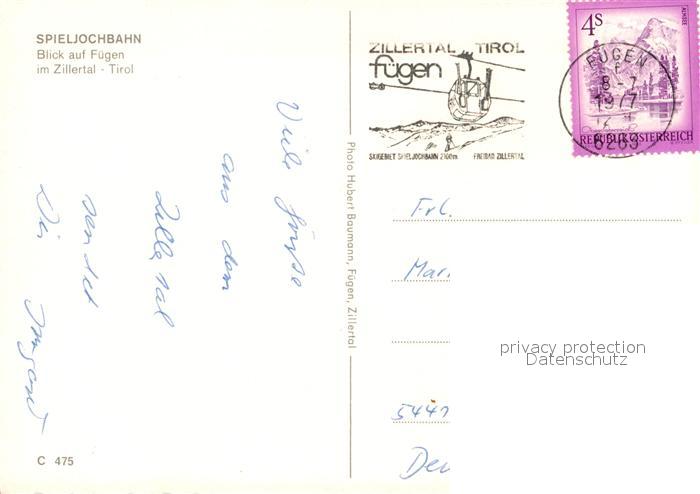 SPIELJOCHBAHN
Blick auf Fügen
im Zillertal - Tirol
Viele Grüsse
aus dem
Zillertal
sendet
Dir Irmgard
C 475
Photo Hubert Baumann, Fügen, Zillertal
ZILLERTAL TIROL
fügen
SKIGEBIET SPIELJOCHBAHN 2100m FREIBAD ZILLERTAL
4S
ALMSEE
REPUBLIK ÖSTERREICH
FÜGEN
f
8-7
1977
6263
Frl.
Mar.
5441
Deu
privacy protection
Datenschutz